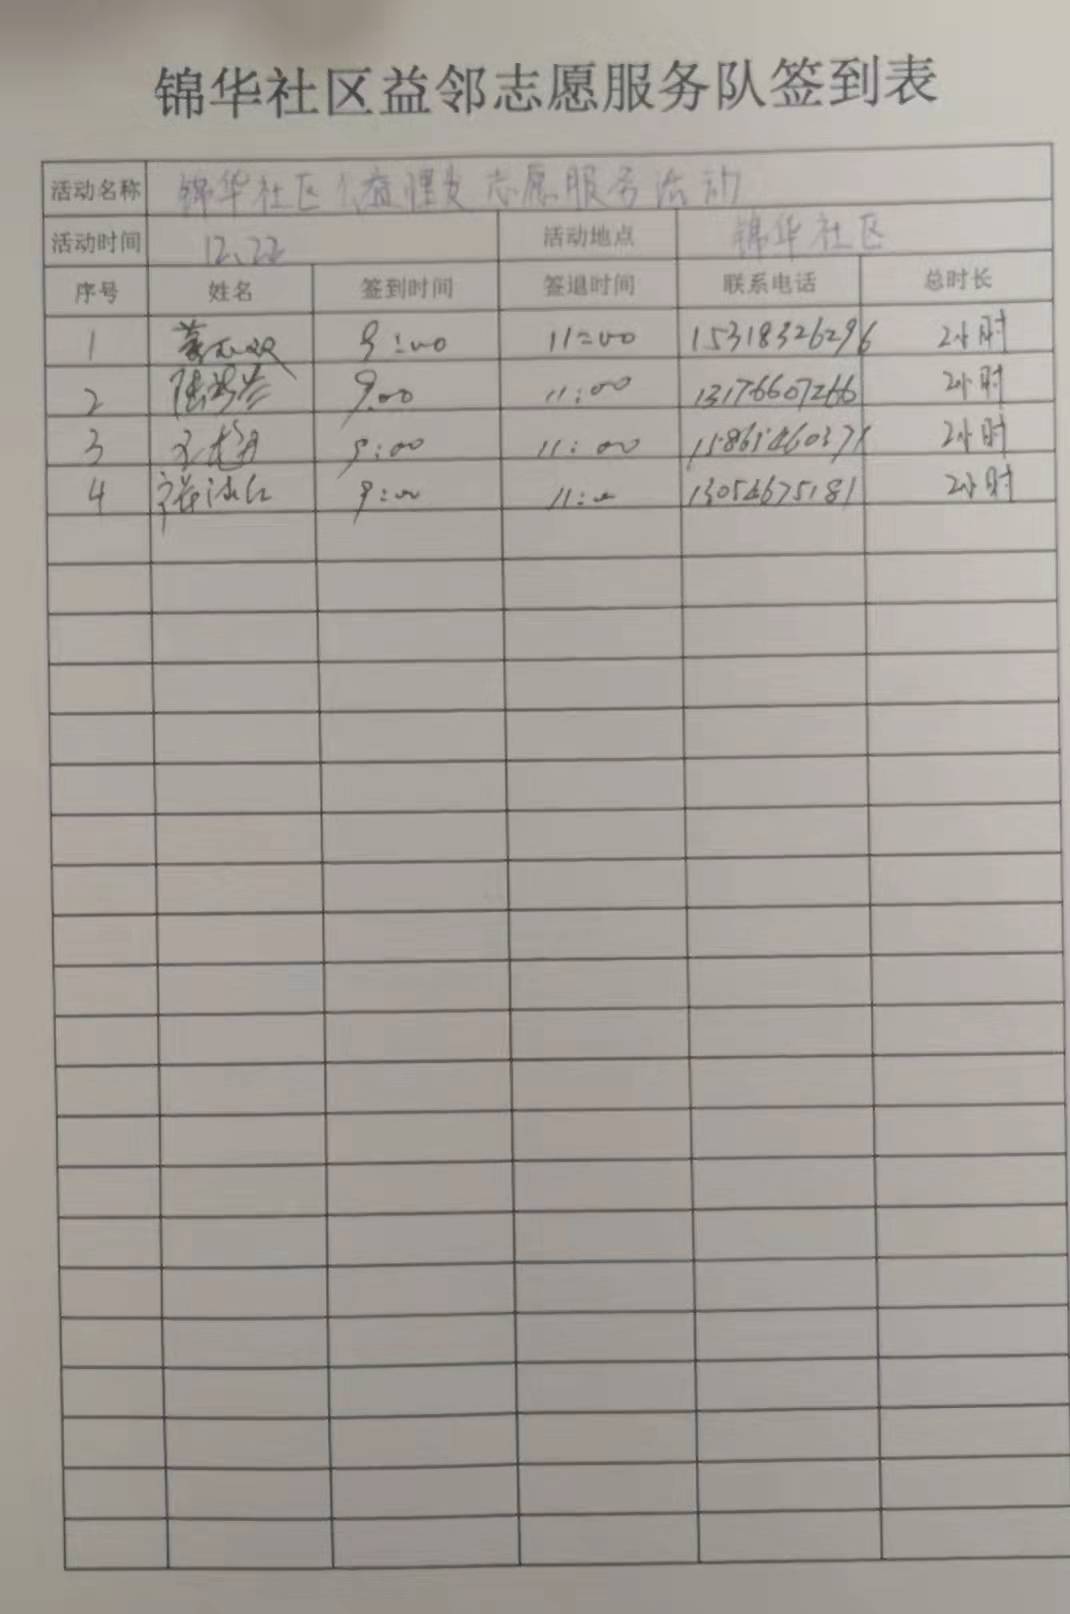 锦华社区益邻志愿服务队签到表
活动名称 锦华社区公益理发志愿服务活动
活动时间 12、22 活动地点 锦华社区
序号 姓名 签到时间 签退时间 联系电话 总时长
1 9:00 11:00 15318326296 2小时
2 9:00 11:00 13176607266 2小时
3 9:00 11:00 2小时
4 9:00 11:00 13054675181 2小时